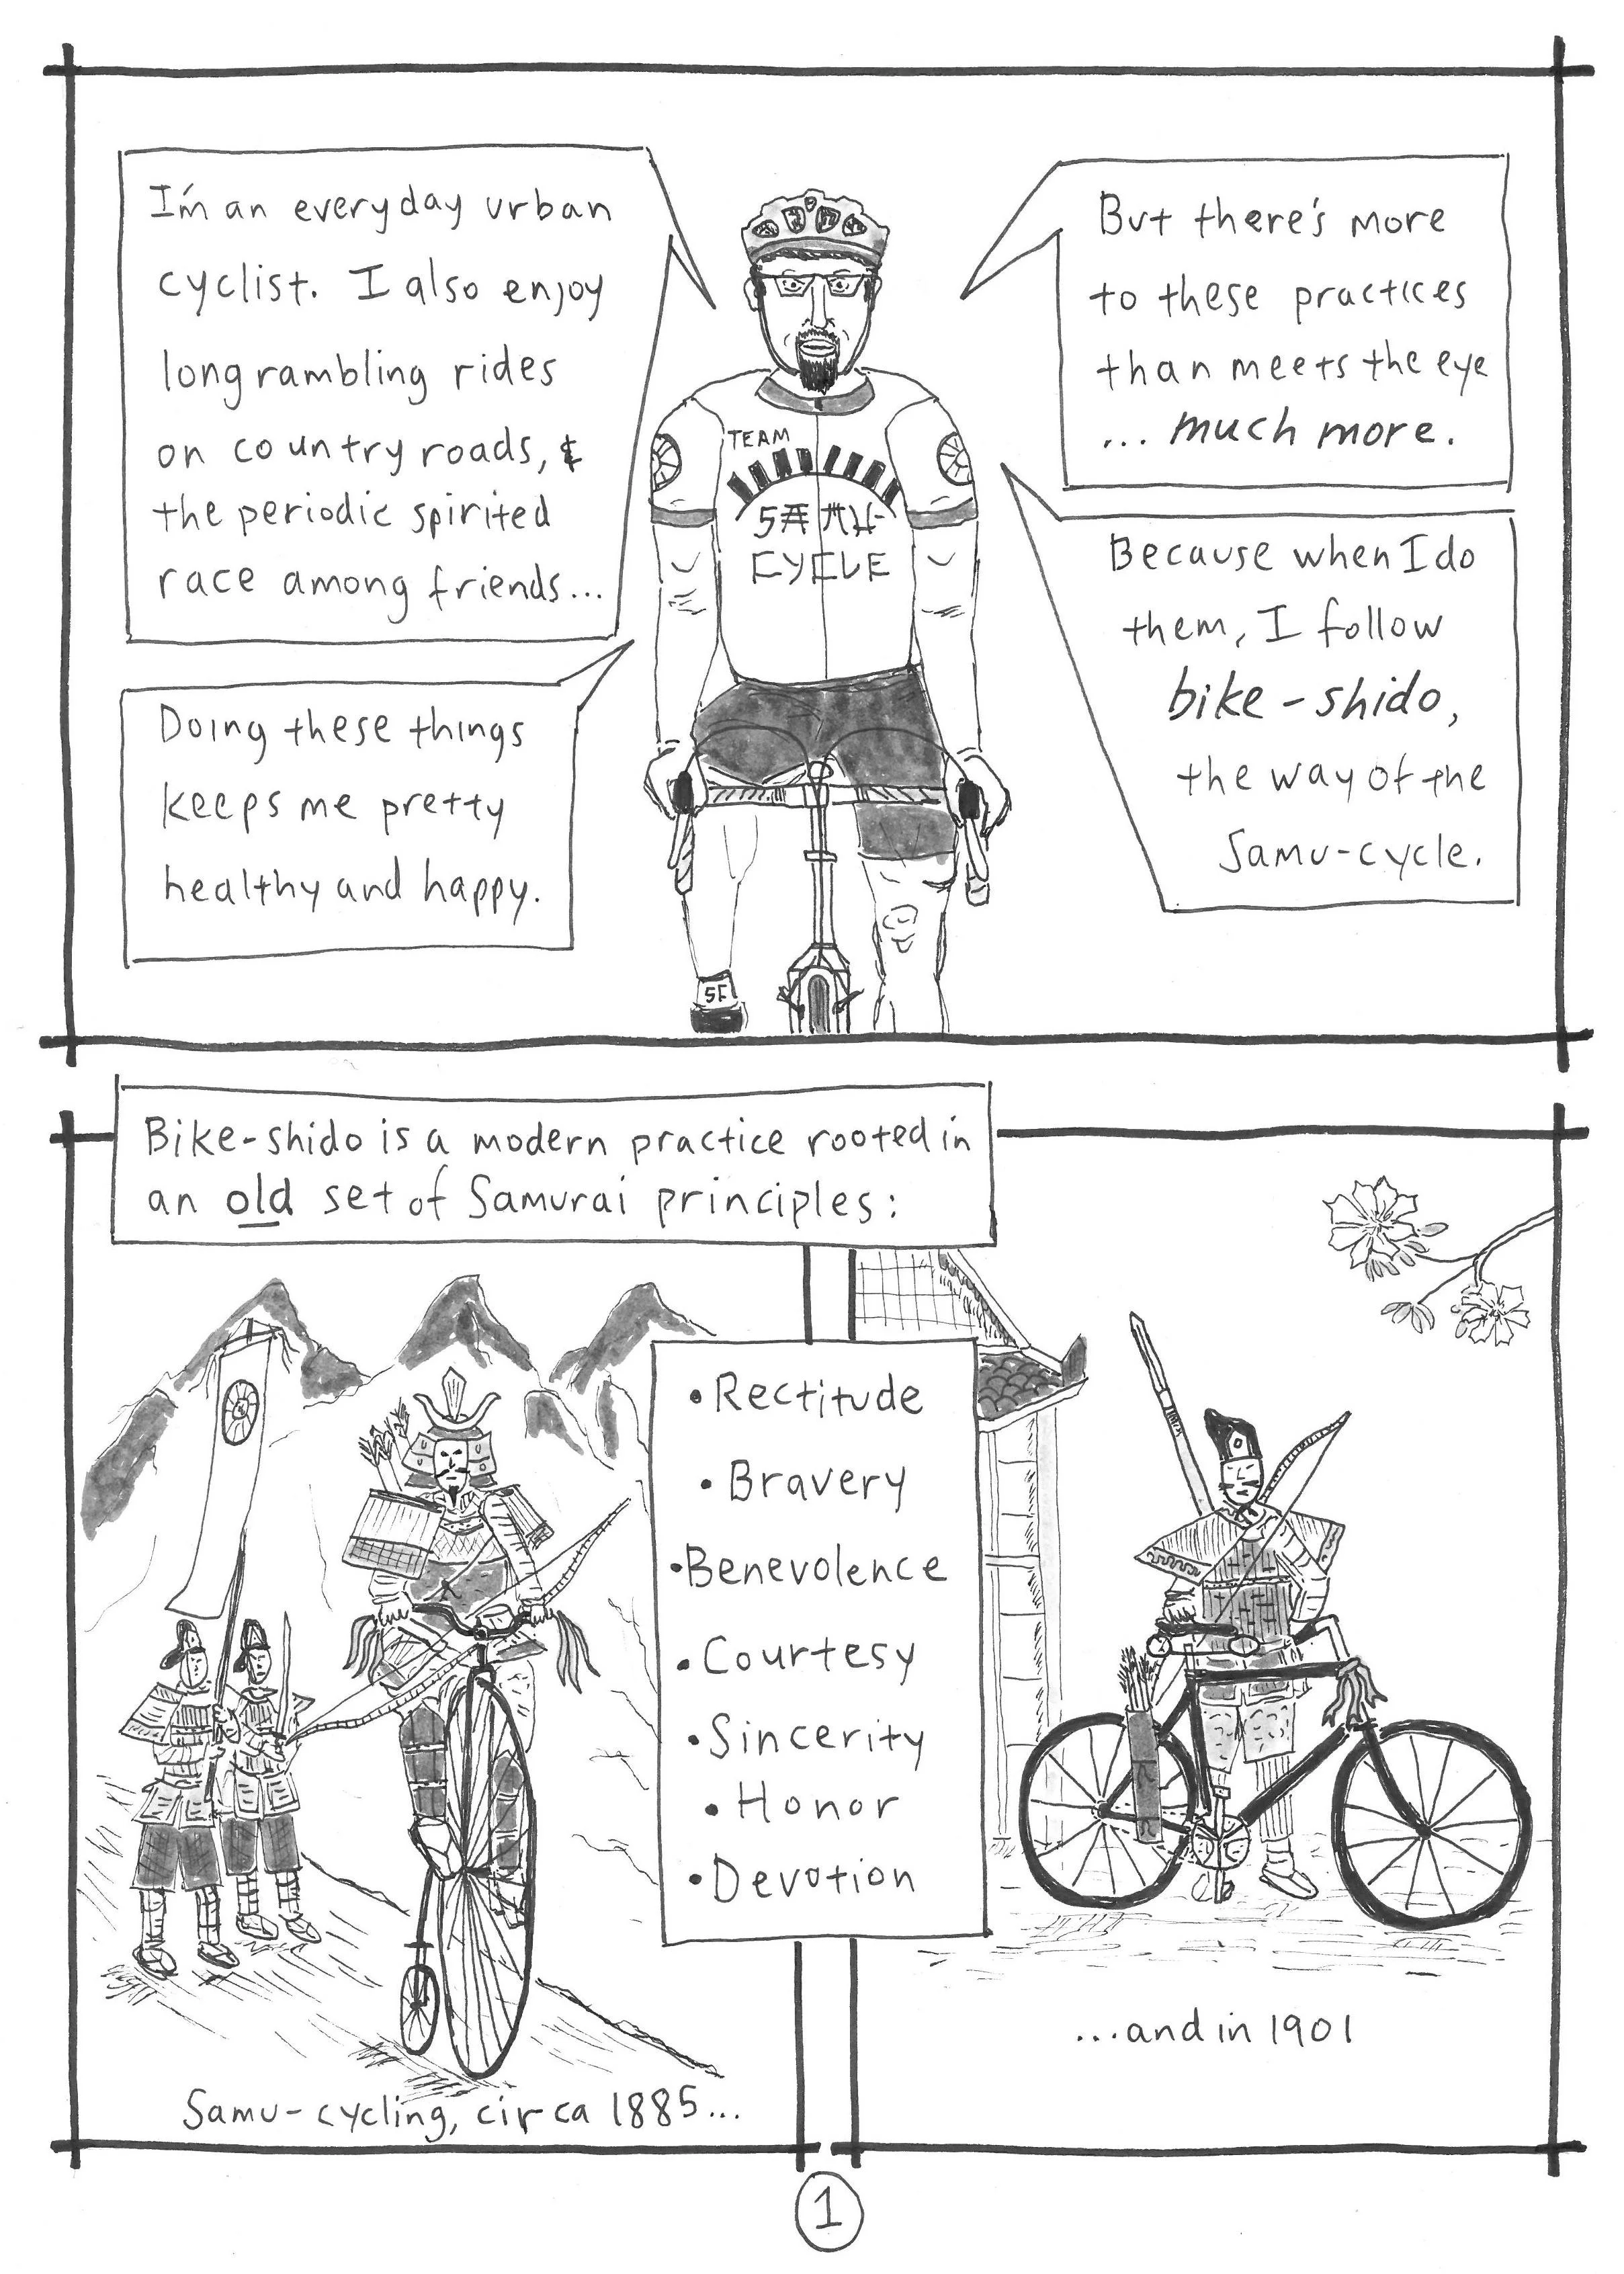 I'm an everyday urban
cyclist. I also enjoy
long rambling rides
on country roads, &
the periodic spirited
race among friends...
Doing these things
keeps me pretty
healthy and happy.
But there's more
to these practices
than meets the eye
... much more.
Because when I do
them, I follow
bike-shido,
the way of the
Samu-cycle.
TEAM
SAMU-
CYCLE
SF
Bike-shido is a modern practice rooted in
an old set of Samurai principles:
• Rectitude
• Bravery
• Benevolence
• Courtesy
• Sincerity
• Honor
• Devotion
Samu-cycling, circa 1885...
...and in 1901
1